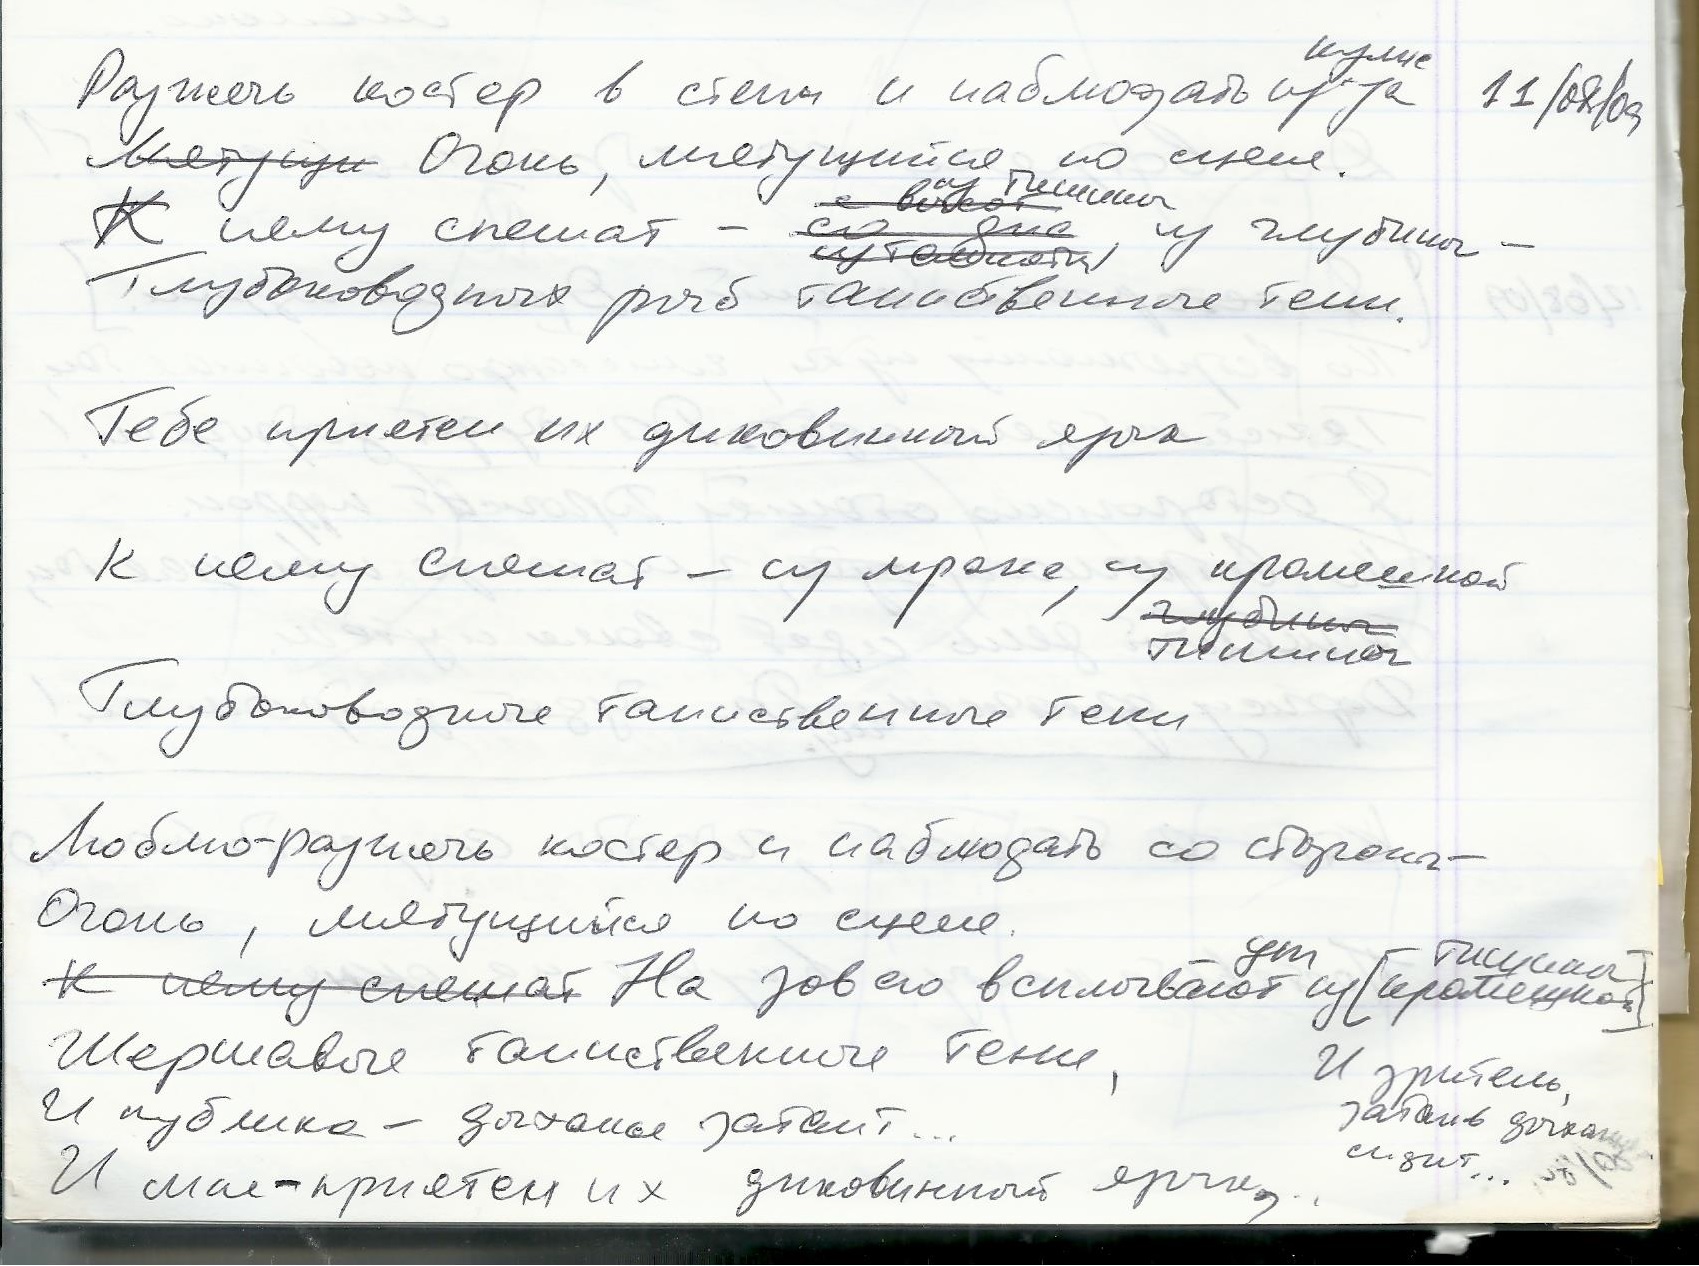 кулис
Разжечь костер в степи и наблюдать из-за 11/08/09
Мятущи Огонь, мятущийся по сцене.
с высот из тишины
К нему спешат – со дна, из глубины –
из темноты
Глубоководных рыб таинственные тени.
Тебе приятен их диковинный язык
К нему спешат – из мрака, из кромешной
глубины
тишины
Глубоководные таинственные тени
Люблю-разжечь костер и наблюдать со стороны–
Огонь, мятущийся по сцене.
тишины
К нему спешат На зов его всплывают из [кромешной]
Шершавые таинственные тени,
И зритель,
И публика – дыханье затаит...
затаив дыхань
сидит...
И мне-приятен их диковинный язык...